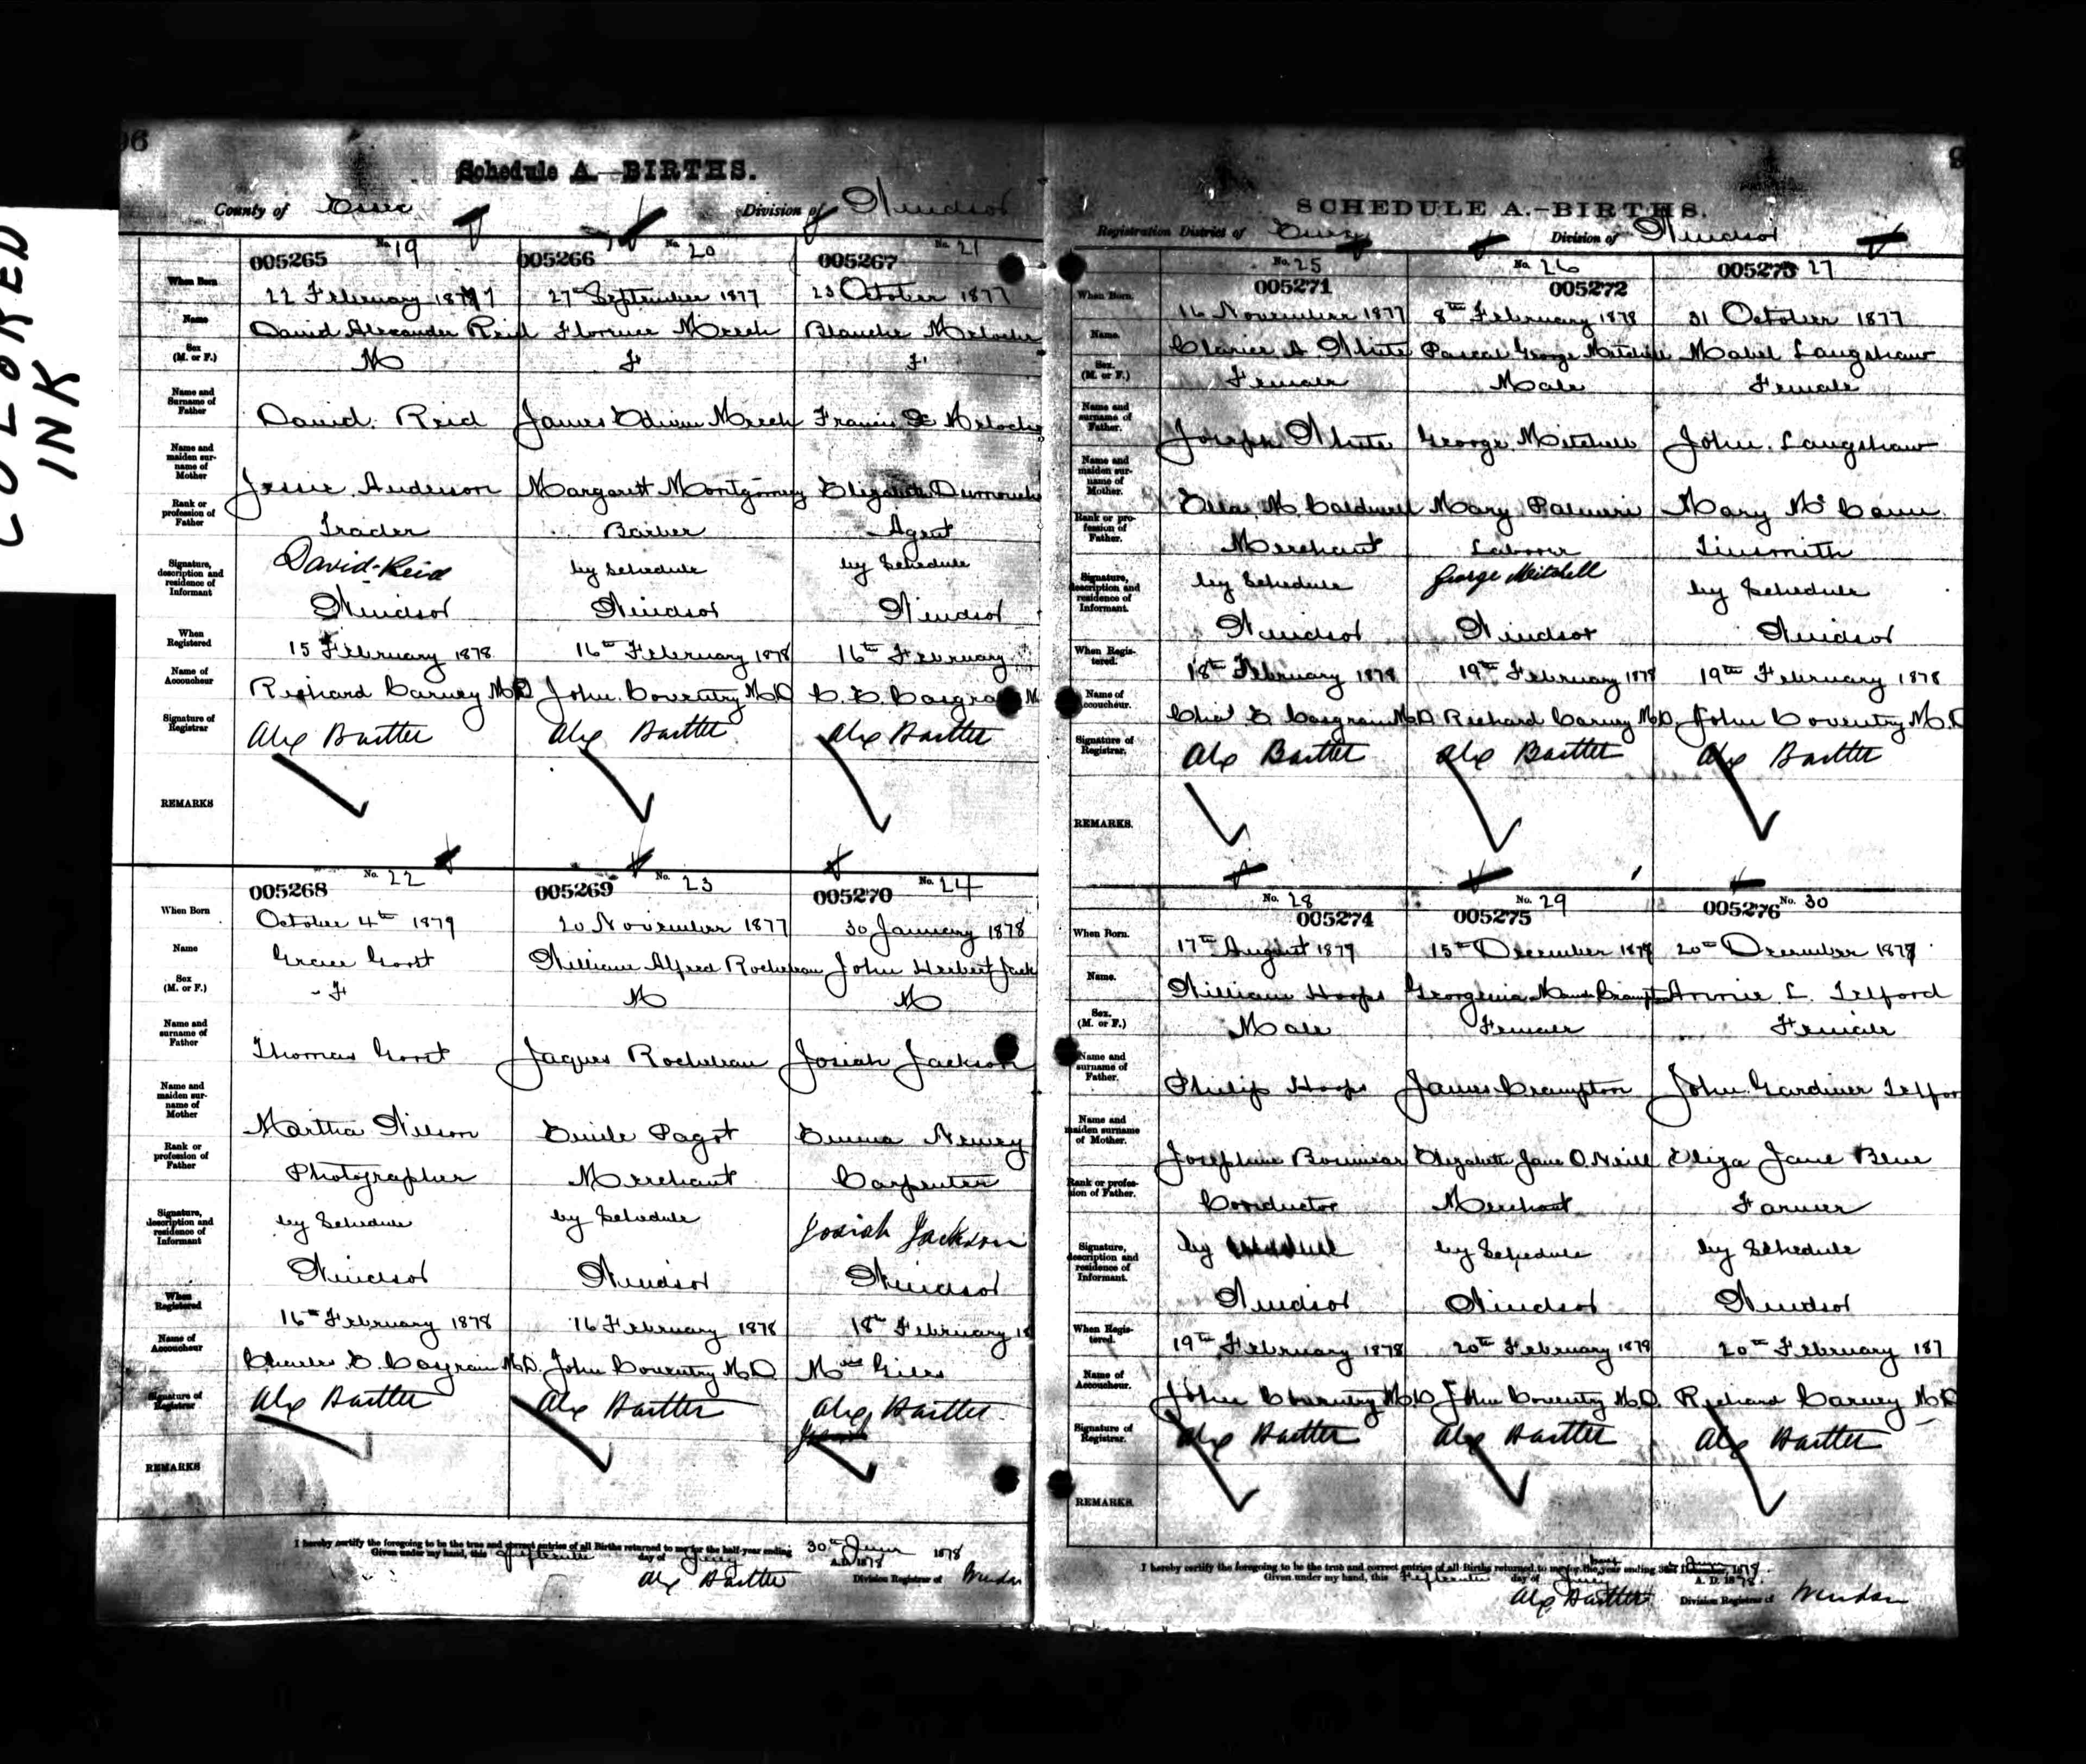 COLORED
INK
96
Schedule A.—BIRTHS.
County of Essex Division of Windsor
No. 19 No. 20 No. 21
005265 005266 005267
When Born 22 February 1877 27th September 1877 23 October 1877
Name David Alexander Reid Florence Meech Blanche Meloche
Sex (M. or F.) M F F
Name and Surname of Father David Reid James Edwin Meech Francis Meloche
Name and maiden surname of Mother Jessie Anderson Margarett Montgomery Elizabeth
Rank or profession of Father Trader Barber Agent
Signature, description and residence of Informant David Reid by Schedule by Schedule
Windsor Windsor Windsor
When Registered 15 February 1878 16th February 1878 16th February
Name of Accoucheur Richard Carney M.D John Coventry M.D C. E. Casgrain M
Signature of Registrar Alex Bartlet Alex Bartlet Alex Bartlet
REMARKS
No. 22 No. 23 No. 24
005268 005269 005270
When Born October 4th 1877 20 November 1877 30 January 1878
Name Grace Gorst William Alfred Rocheleau John Herbert Jack
Sex (M. or F.) F M M
Name and surname of Father Thomas Gorst Jaques Rocheleau Josiah Jackson
Name and maiden surname of Mother Martha Wilson Emile Pagot Emma
Rank or profession of Father Photographer Merchant Carpenter
Signature, description and residence of Informant by Schedule by Schedule Josiah Jackson
Windsor Windsor Windsor
When Registered 16th February 1878 16 February 1878 18th February 18
Name of Accoucheur Charles E Casgrain M.D. John Coventry M.D Mrs Giles
Signature of Registrar Alex Bartlet Alex Bartlet Alex Bartlet
REMARKS
I hereby certify the foregoing to be the true and correct entries of all Births returned to me for the half-year ending 30th June 1878
Given under my hand, this fifteenth day of July A.D. 1878
Alex Bartlet Division Registrar of Windsor
SCHEDULE A.—BIRTHS.
Registration District of Essex Division of Windsor
No. 25 No. 26 27
005271 005272 005273
When Born. 16 November 1877 8th February 1878 31 October 1877
Name. Clarice A White Pascal George Mitchell Mabel Langshaw
Sex. (M. or F.) Female Male Female
Name and surname of Father. Joseph White George Mitchell John Langshaw
Name and maiden surname of Mother. Ella M. Caldwell Mary Mary McCann
Rank or profession of Father. Merchant Labourer Tinsmith
Signature, description and residence of Informant. by Schedule George Mitchell by Schedule
Windsor Windsor Windsor
When Registered. 18th February 1878 19th February 1878 19th February 1878
Name of Accoucheur. Chas E Casgrain M.D. Richard Carney M.D. John Coventry M.D
Signature of Registrar. Alex Bartlet Alex Bartlet Alex Bartlet
REMARKS.
No. 28 No. 29 No. 30
005274 005275 005276
When Born. 17th August 1877 15th December 1877 20th December 1877
Name. William Hoops Georgenia Maud Brampton Annie L. Telford
Sex. (M. or F.) Male Female Female
Name and surname of Father. Philip Hoops James Crampton John Gardiner Telfor
Name and maiden surname of Mother. Josephine Elizabeth Jane O.Neill Eliza Jane Blue
Rank or profession of Father. Conductor Merchant Farmer
Signature, description and residence of Informant. by by Schedule by Schedule
Windsor Windsor Windsor
When Registered. 19th February 1878 20th February 1878 20th February 187
Name of Accoucheur. John Coventry M.D John Coventry M.D. Richard Carney M.D
Signature of Registrar. Alex Bartlet Alex Bartlet Alex Bartlet
REMARKS.
I hereby certify the foregoing to be the true and correct entries of all Births returned to me for the half year ending 30th June 1878.
Given under my hand, this fifteenth day of July A. D. 1878.
Alex Bartlet Division Registrar of Windsor